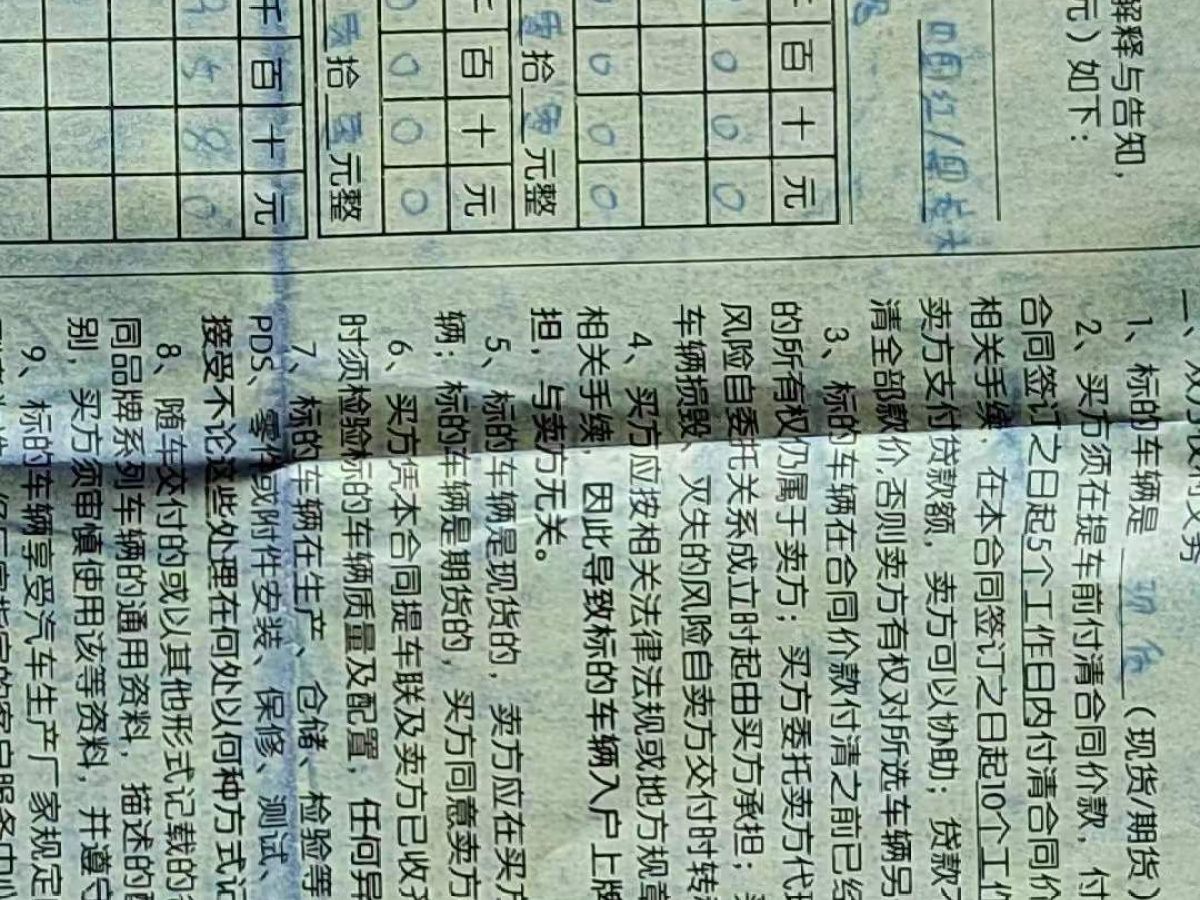 解释与告知，
元）如下：
百 十 元
0 0 0
0 0 0
拾 元整
百 十 元
0 0 0
拾 元整
千 百 十 元
5 8 0
1、标的车辆是 现货 （现货/期货）
2、买方须在提车前付清合同价款，付
合同签订之日起5个工作日内付清合同价
相关手续，在本合同签订之日起10个工作
卖方支付贷款额，卖方可以协助；贷款不
清全部款价,否则卖方有权对所选车辆另
3、标的车辆在合同价款付清之前已经
的所有权仍属于卖方；买方委托卖方代理
风险自委托关系成立时起由买方承担；
车辆损毁、灭失的风险自卖方交付时转
4、买方应按相关法律法规或地方规章
相关手续，因此导致标的车辆入户上牌
担，与卖方无关。
5、标的车辆是现货的，卖方应在买方
辆；标的车辆是期货的，买方同意卖方
6、买方凭本合同提车联及卖方已收
时须检验标的车辆质量及配置，任何异
7、标的车辆在生产、仓储、检验等
PDS、零件或附件安装、保修、测试、
接受不论这些处理在何处以何种方式记
8、随车交付的或以其他形式记载的
同品牌系列车辆的通用资料，描述的配
别，买方须审慎使用该等资料，并遵守
9、标的车辆享受汽车生产厂家规定